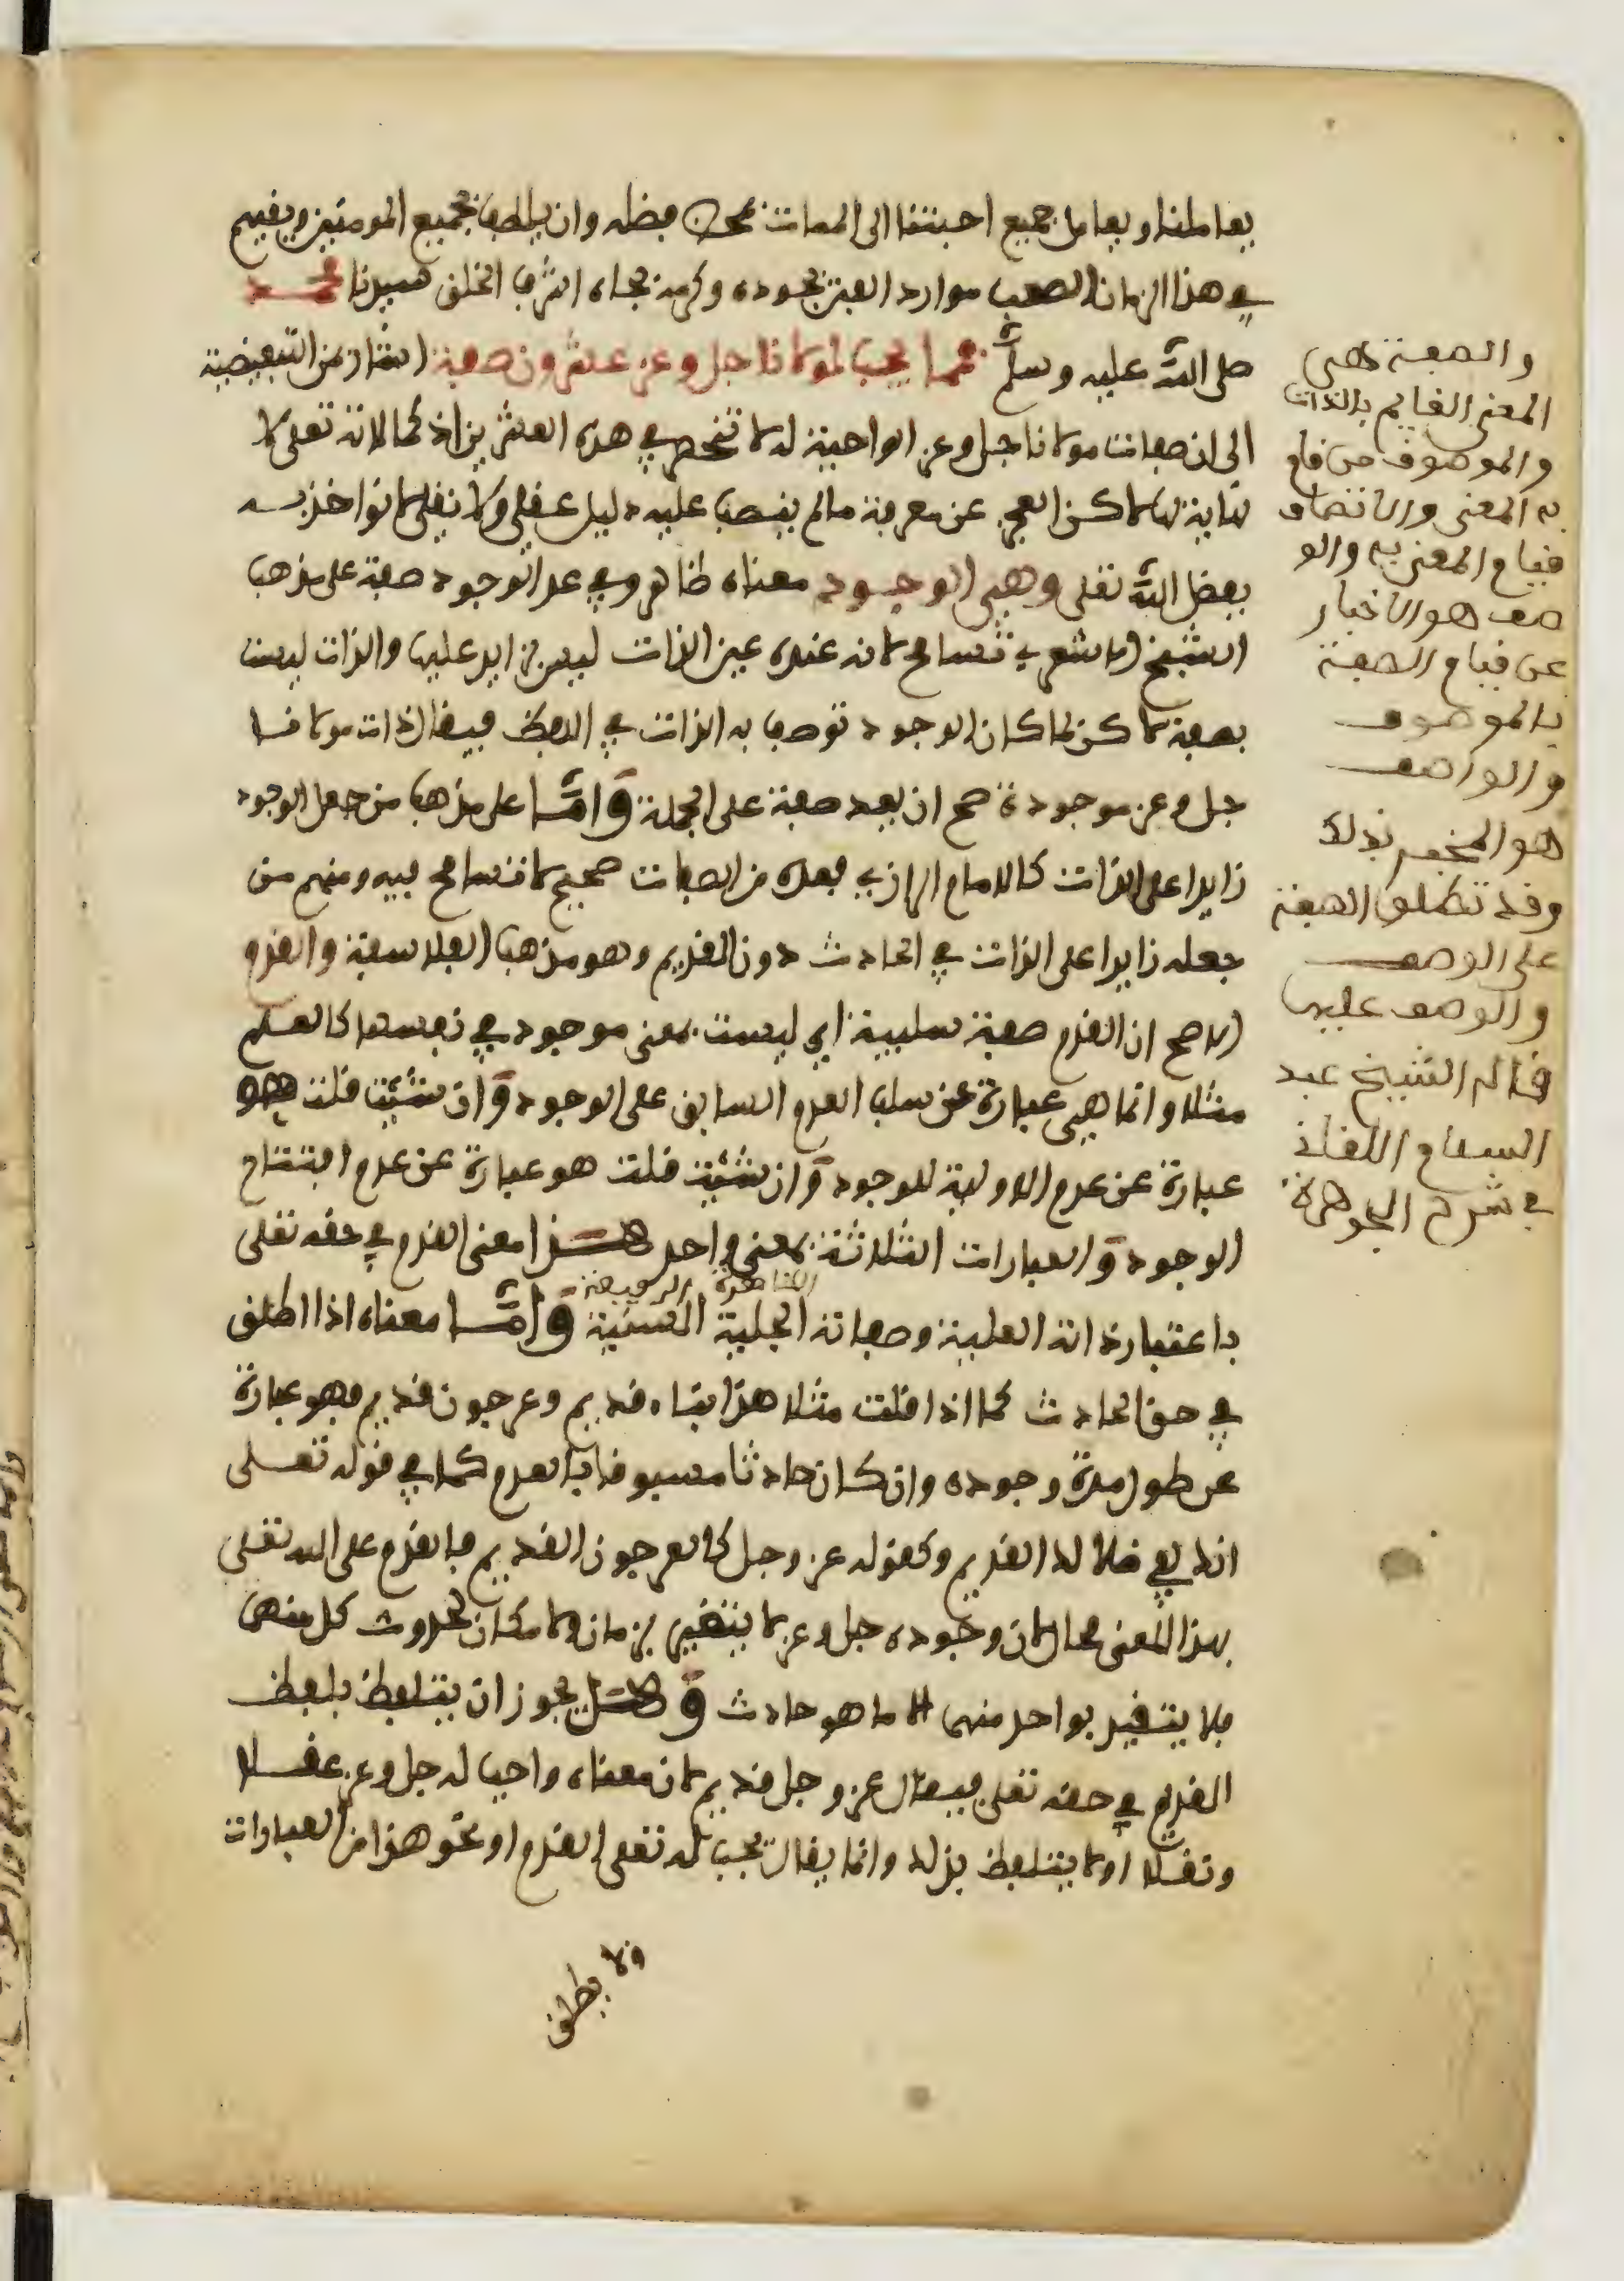 يعاملنا ويعامل جميع احبتنا الى الممات بمحض فضله وان يلطف بجميع المومنين ويقيهم
في هذا الزمان الصعب موارد الفتن بجوده وكرمه بجاه اشرف الخلق سيدنا محمد
صلى الله عليه وسلم فمما يجب لمولانا جل وعز عشرون صفة اشار بمن التبعيضية
الى ان صفات مولانا جل وعز الواجبة له لا تنحصر في هذه العشرين اذ كمالاته تعلى لا
نهاية لها لاكن العجز عن معرفة ما لم ينصب عليه دليل عقلي ولا نقلي لا نواخذ به
بفضل الله تعلى وهي الوجود معناه ظاهر وفي عد الوجود صفة على مذهب
الشيخ الاشعري تسامح لانه عنده عين الذات ليس بزايد عليها والذات ليست
بصفة لاكن لما كان الوجود توصف به الذات في اللفظ فيقال ذات مولانا
جل وعز موجودة صح ان يعد صفة على الجملة واما على مذهب من جعل الوجود
زايدا على الذات كالامام الرازي فعده من الصفات صحيح لا تسامح فيه ومنهم من
جعله زايدا على الذات في الحادث دون القديم وهو مذهب الفلاسفة والقدم
الاصح ان القدم صفة سلبية اي ليست بمعنى موجود في نفسها كالعلم
مثلا وانما هي عبارة عن سلب العدم السابق على الوجود وان شئت قلت هو
عبارة عن عدم الاولية للوجود وان شئت قلت هو عبارة عن عدم افتتاح
الوجود والعبارات الثلاثة بمعنى واحد هذا معنى القدم في حقه تعلى
الرفيعة
باعتبار ذاته العلية وصفاته الجلية السنية واما معناه اذا اطلق
في حق الحادث كما اذا قلت مثلا هذا بناء قديم وعرجون قديم فهو عبارة
عن طول مدة وجوده وان كان حادثا مسبوقا بالعدم كما في قوله تعلى
انك لفي ضلالك القديم وكقوله عز وجل كالعرجون القديم فالقدم على الله تعلى
بهذا المعنى محال لان وجوده جل وعز لا يتقيد بزمان ولا مكان لحدوث كل منهما
فلا يتقيد بواحد منهما الا ما هو حادث وهل يجوز ان يتلفظ بلفظ
القديم في حقه تعلى فيقال عز وجل قديم لان معناه واجب له جل وعز عقلا
ونقلا او لا يتلفظ بذلك وانما يقال يجب له تعلى القدم او نحو هذا من العبارات
ولا يطلق
والصفة هي
المعنى القايم بالذات
والموصوف من قام
به المعنى والاتصاف
قيام المعنى به والو
صف هو الاخبار
عن قيام الصفة
بالموصوف
والواصف
هو المخبر بذلك
وقد تطلق الصفة
على الوصف
والوصف عليها
قاله الشيخ عبد
السلام اللقاني
في شرح الجوهرة